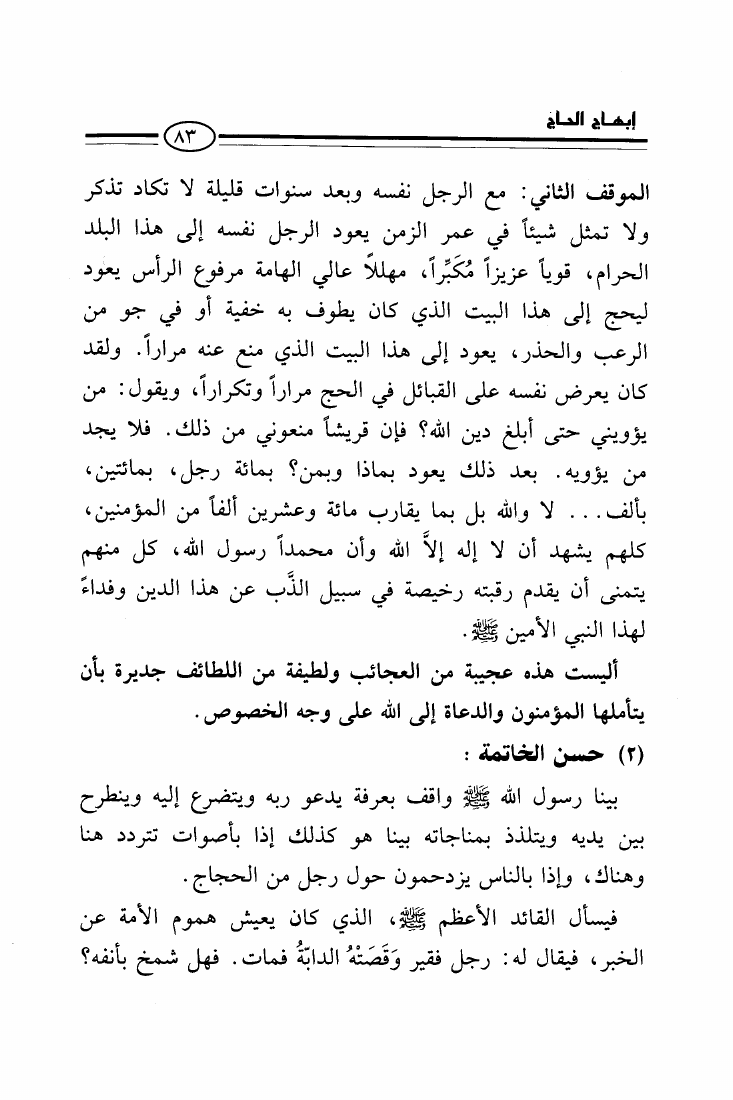 إبهـاج الحـاج
٨٣
الموقف الثاني: مع الرجل نفسه وبعد سنوات قليلة لا تكاد تذكر
ولا تمثل شيئاً في عمر الزمن يعود الرجل نفسه إلى هذا البلد
الحرام، قوياً عزيزاً مُكَبِّراً، مهللاً عالي الهامة مرفوع الرأس يعود
ليحج إلى هذا البيت الذي كان يطوف به خفية أو في جو من
الرعب والحذر، يعود إلى هذا البيت الذي منع عنه مراراً. ولقد
كان يعرض نفسه على القبائل في الحج مراراً وتكراراً، ويقول: من
يؤويني حتى أبلغ دين الله؟ فإن قريشاً منعوني من ذلك. فلا يجد
من يؤويه. بعد ذلك يعود بماذا وبمن؟ بمائة رجل، بمائتين،
بألف... لا والله بل بما يقارب مائة وعشرين ألفاً من المؤمنين،
كلهم يشهد أن لا إله إلاَّ الله وأن محمداً رسول الله، كل منهم
يتمنى أن يقدم رقبته رخيصة في سبيل الذَّب عن هذا الدين وفداءً
لهذا النبي الأمين ﷺ.
أليست هذه عجيبة من العجائب ولطيفة من اللطائف جديرة بأن
يتأملها المؤمنون والدعاة إلى الله على وجه الخصوص.
(٢) حسن الخاتمة :
بينا رسول الله ﷺ واقف بعرفة يدعو ربه ويتضرع إليه وينطرح
بين يديه ويتلذذ بمناجاته بينا هو كذلك إذا بأصوات تتردد هنا
وهناك، وإذا بالناس يزدحمون حول رجل من الحجاج.
فيسأل القائد الأعظم ﷺ، الذي كان يعيش هموم الأمة عن
الخبر، فيقال له: رجل فقير وَقَصَتْهُ الدابّةُ فمات. فهل شمخ بأنفه؟